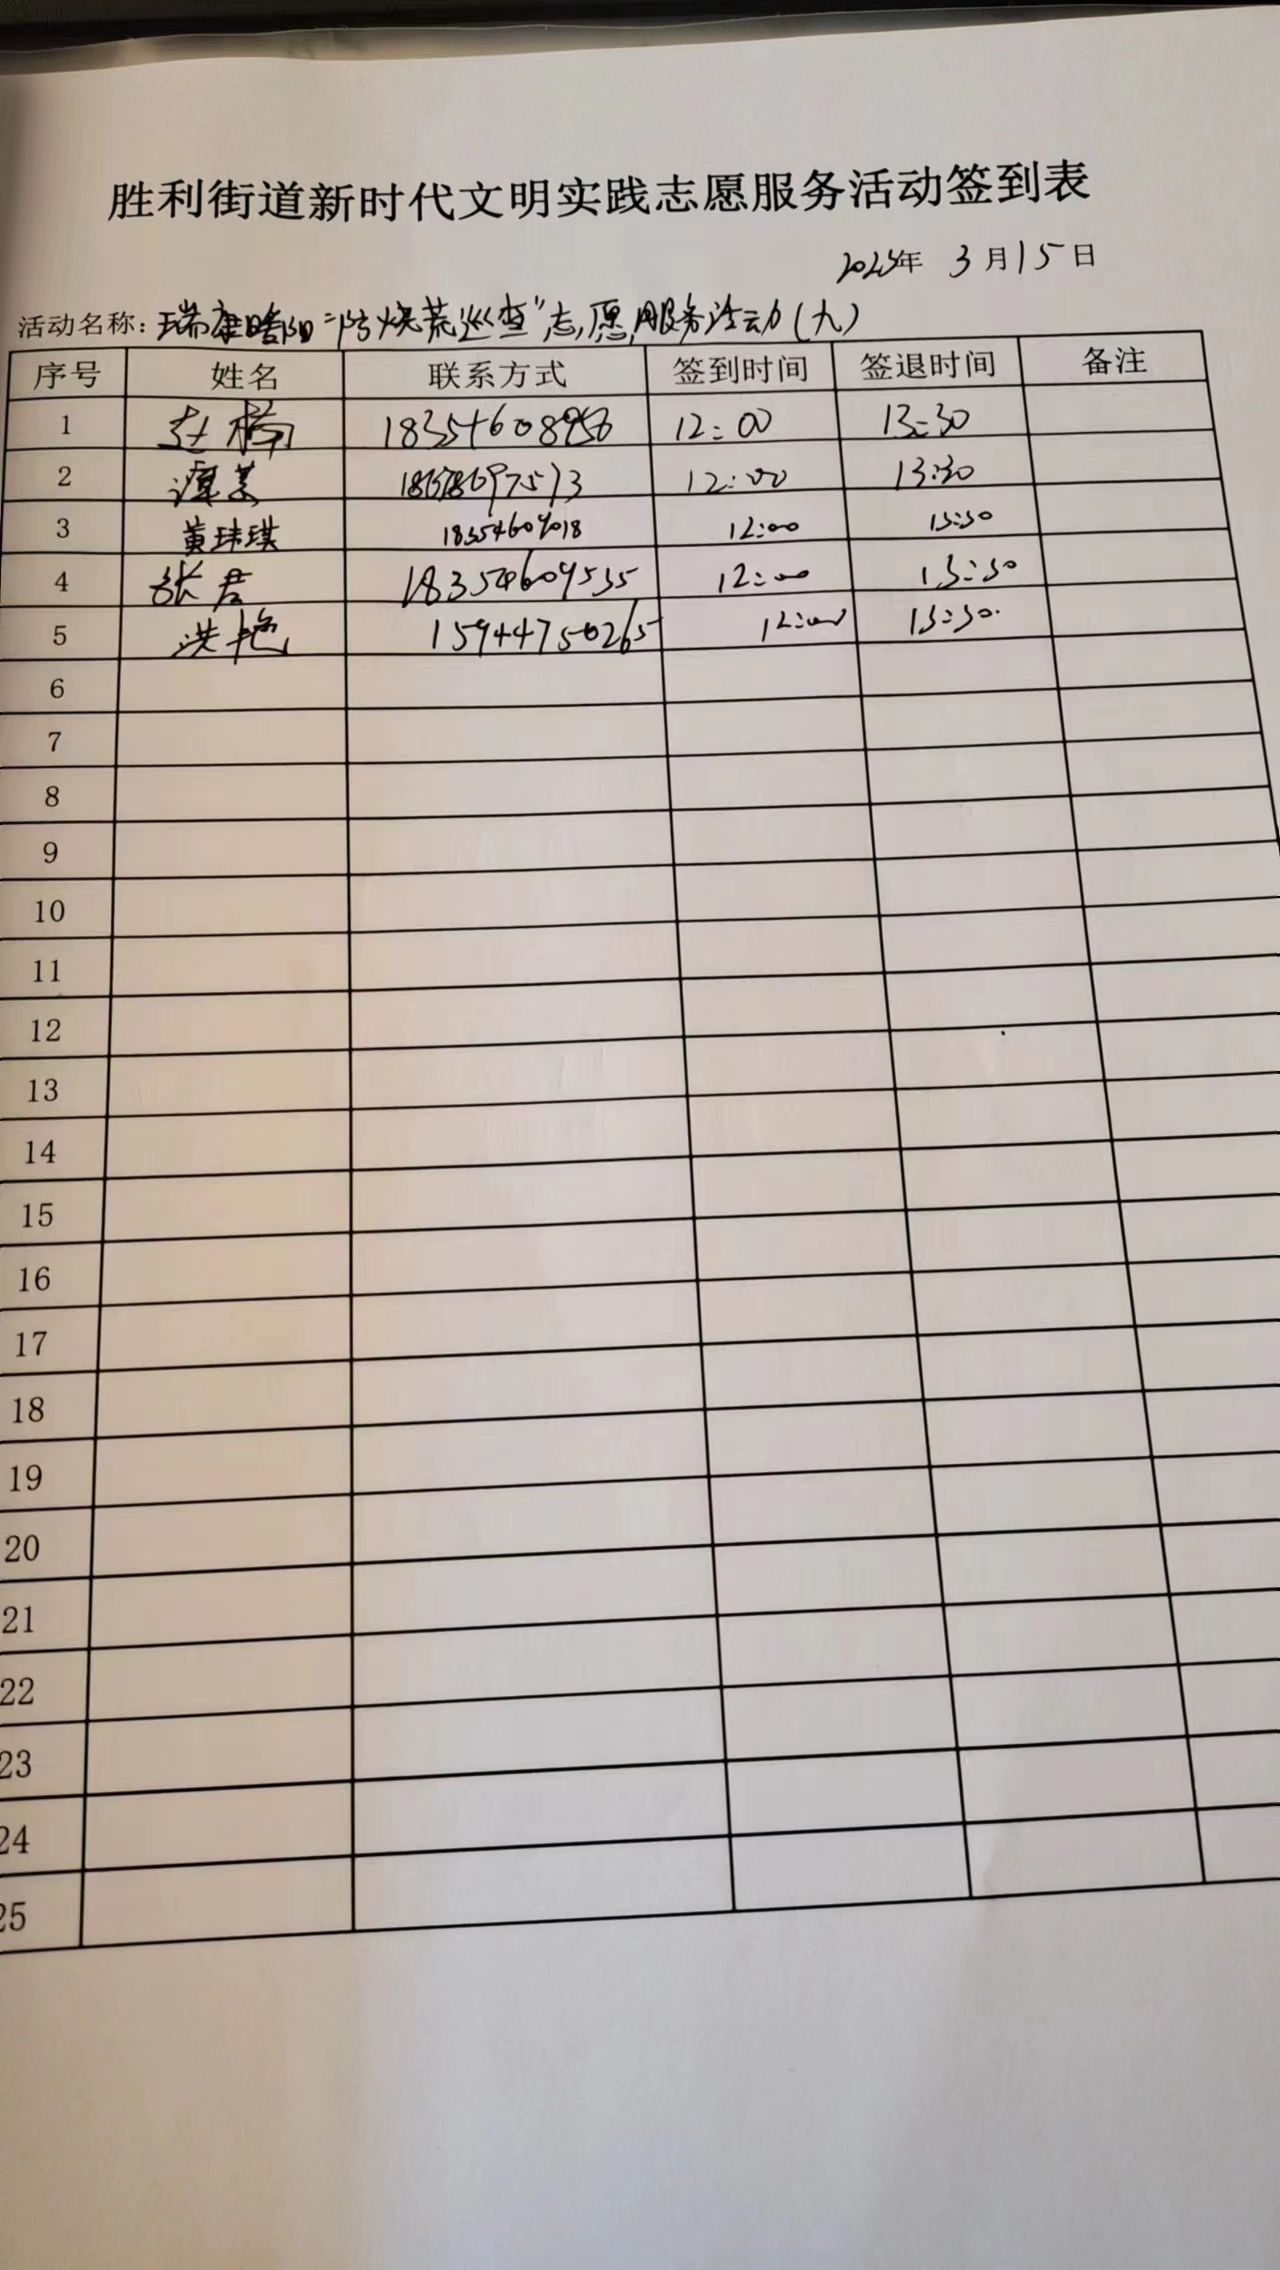 胜利街道新时代文明实践志愿服务活动签到表
年 3月15日
活动名称：瑞康暄阳“防烧荒巡查”志愿服务活动（九）
序号 姓名 联系方式 签到时间 签退时间 备注
1 赵楠 18354608956 12:00 13:30
2 谭美 12:00 13:30
3 黄玮琪 18354609018 12:00 13:30
4 张君 18354609535 12:00 13:30
5 洪艳 15944750265 12:00 13:30
6
7
8
9
10
11
12
13
14
15
16
17
18
19
20
21
22
23
24
25